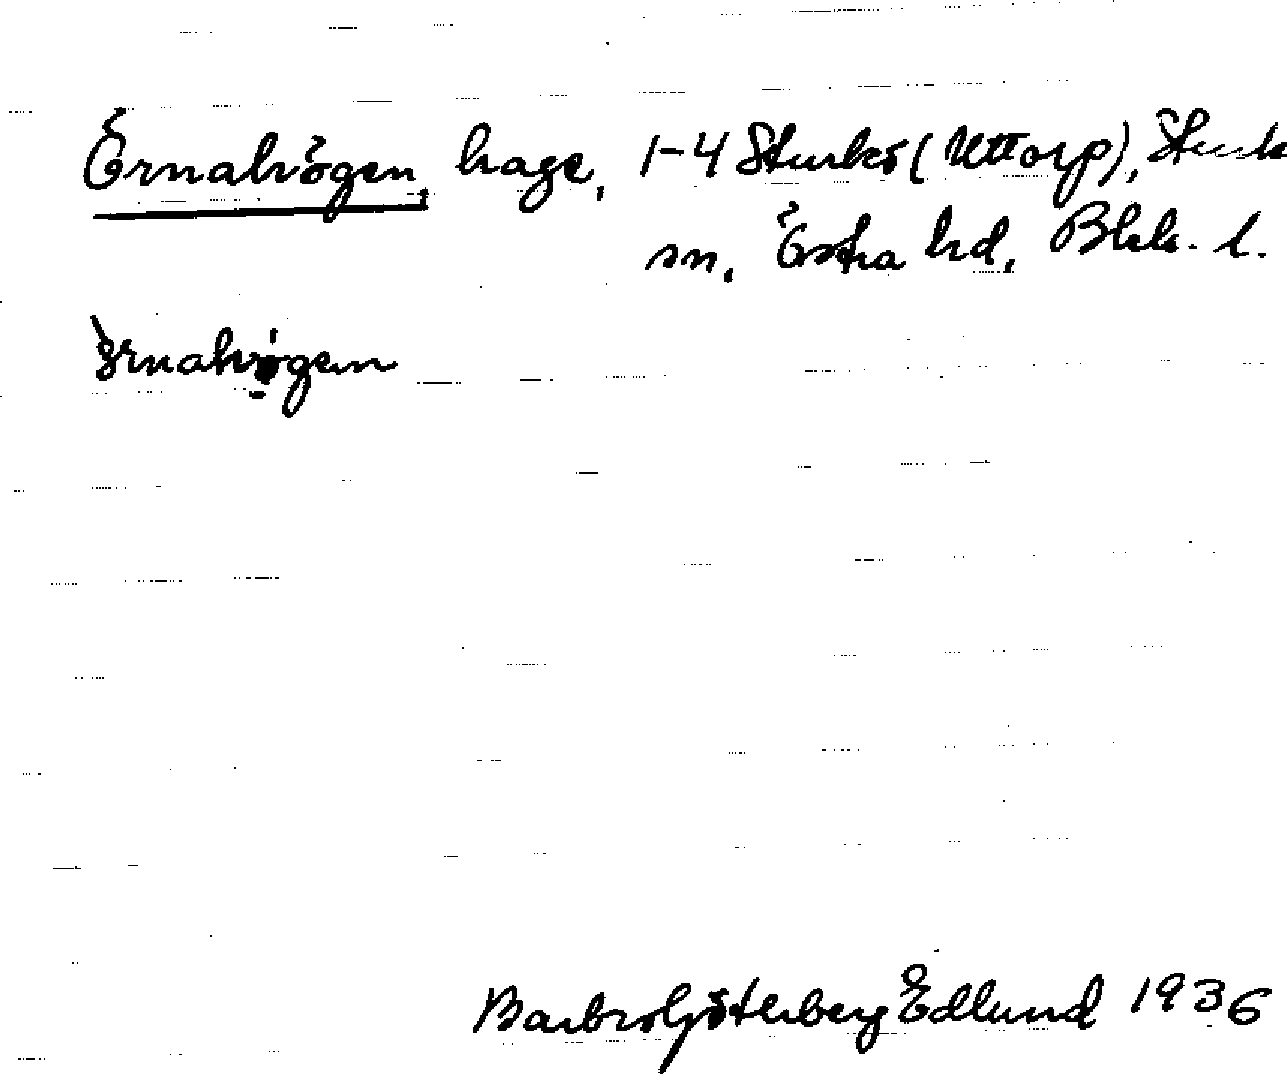 Örnahögen, hage, 1-4 Sturkö (Uttorp), Sturk
sn, Östra hd, Blek. l.
Barbro Göterberg Edlund 1936